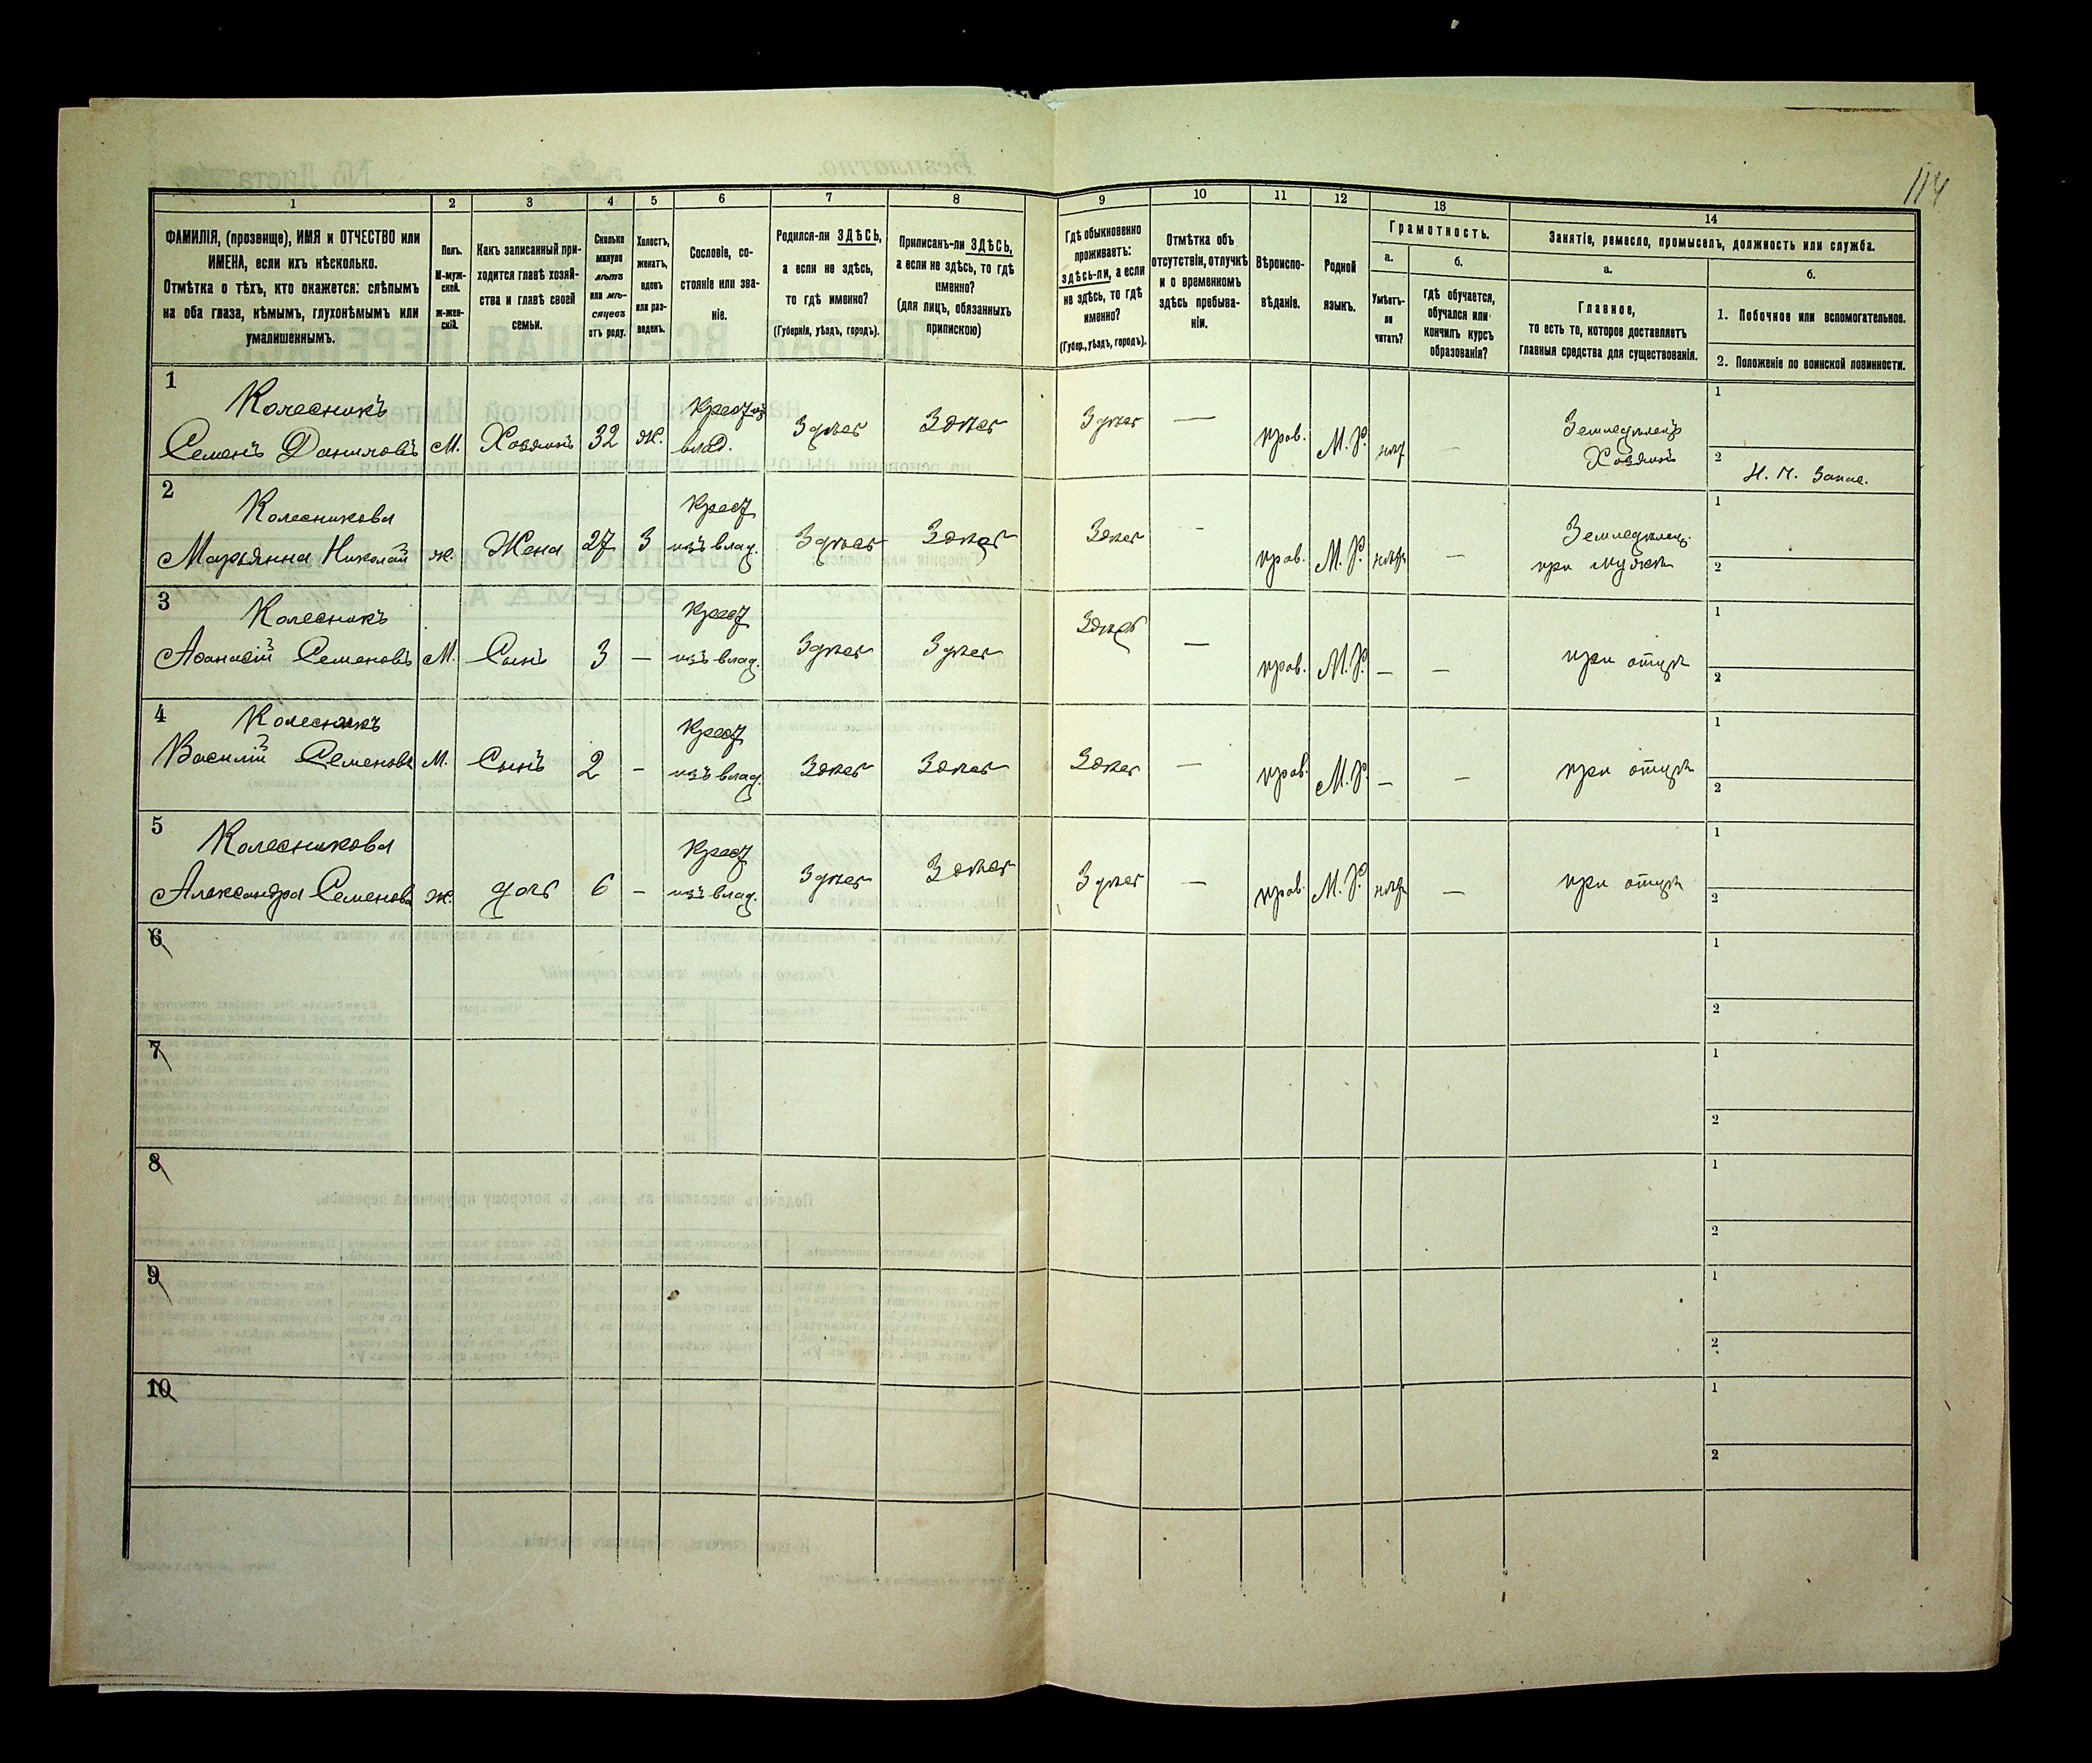 114
1 2 3 4 5 6 7 8 9 10 11 12 13 14
ФАМИЛІЯ, (прозвище), ИМЯ и ОТЧЕСТВО или
ИМЕНА, если ихъ нѣсколько.
Отмѣтка о тѣхъ, кто окажется: слѣпымъ
на оба глаза, нѣмымъ, глухонѣмымъ или
умалишеннымъ.
Полъ.
М-муж-
ской.
Ж-жен-
скій.
Какъ записанный при-
ходится главѣ хозяй-
ства и главѣ своей
семьи.
Сколько
минуло
лѣтъ
или мѣ-
сяцевъ
отъ роду.
Холостъ,
женатъ,
вдовъ
или раз-
веденъ.
Сословіе, со-
стояніе или зва-
ніе.
Родился-ли ЗДѢСЬ,
а если не здѣсь,
то гдѣ именно?
(Губернія, уѣздъ, городъ).
Приписанъ-ли ЗДѢСЬ,
а если не здѣсь, то гдѣ
именно?
(для лицъ, обязанныхъ
припискою)
Гдѣ обыкновенно
проживаетъ:
здѣсь-ли, а если
не здѣсь, то гдѣ
именно?
(Губер., уѣздъ, городъ).
Отмѣтка объ
отсутствіи, отлучкѣ
и о временномъ
здѣсь пребыва-
ніи.
Вѣроиспо-
вѣданіе.
Родной
языкъ.
Грамотность.
а.
Умѣетъ-
ли
читать?
б.
гдѣ обучается,
обучался или
кончилъ курсъ
образованія?
Занятіе, ремесло, промыселъ, должность или служба.
а.
Главное,
то есть то, которое доставляетъ
главныя средства для существованія.
б.
1. Побочное или вспомогательное.
2. Положеніе по воинской повинности.
1
Колесникъ
Семенъ Даниловъ М. Хозяинъ 32 ж. Крест. изъ влад. Здѣсь Здѣсь Здѣсь — прав. М.Р. нѣт — Земледѣлецъ Хозяинъ
1
2 Н. Ч. Запас.
2
Колесникова
Марьянна Николай ж. Жена 27 З Крест изъ влад. Здѣсь Здѣсь Здѣсь - прав. М.Р. нѣт — Земледѣлец. при мужѣ
1
2
3
Колесникъ
Афанасій Семеновъ М. Сынъ 3 — Крест изъ влад. Здѣсь Здѣсь Здѣсь — прав. М.Р. — — при отцѣ
1
2
4
Колесникъ
Василій Семеновъ М. Сынъ 2 - Крест изъ влад. Здѣсь Здѣсь Здѣсь — прав. М.Р. — — при отцѣ
1
2
5
Колесникова
Александра Семенова ж. дочь 6 — Крест изъ влад. Здѣсь Здѣсь Здѣсь — прав. М.Р. нѣт — при отцѣ
1
2
6
1
2
7
1
2
8
1
2
9
1
2
10
1
2